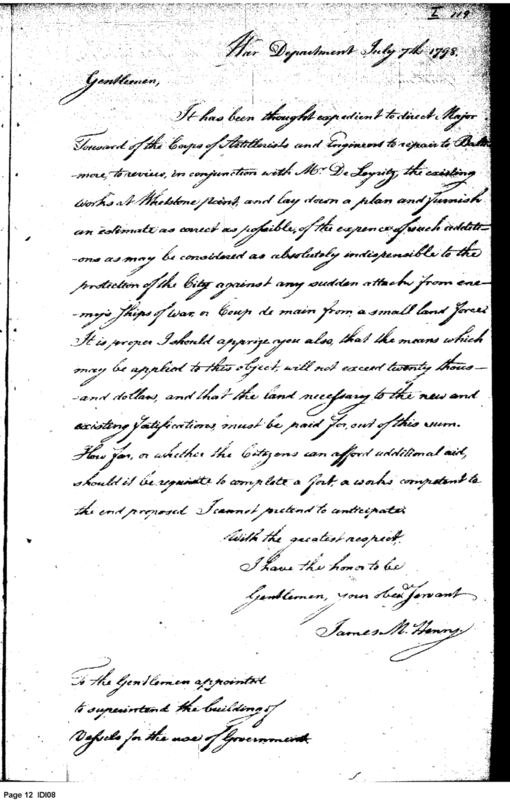 I 119
War Department July 7th 1798.
Gentlemen,
It has been thought expedient to direct Major
Tousard of the Corps of Artillerists and Engineers to repair to Balti-
-more, to review, in conjunction with Mr De the existing
works at Whetstone point, and lay down a plan and furnish
an estimate as correct as possible, of the expence of such additi-
-ons as may be considered as absolutely indispensible to the
protection of the City against any sudden attack from ene-
-mys ships of war, or Coup de main from a small land force.
It is proper I should apprize you also, that the means which
may be applied to this object, will not exceed twenty thous-
-and dollars, and that the land necessary to the new and
existing fortifications must be paid for, out of this sum.
How far, or whether the Citizens can afford additional aid,
should it be requisite to complete a fort, a works competent to
the end proposed I cannot pretend to anticipate.
With the greatest respect,
I have the honor to be
Gentlemen, your Obed Servant
James McHenry
To the Gentlemen appointed
to superintend the building of
Vessels for the use of Government
Page 12 IDI08